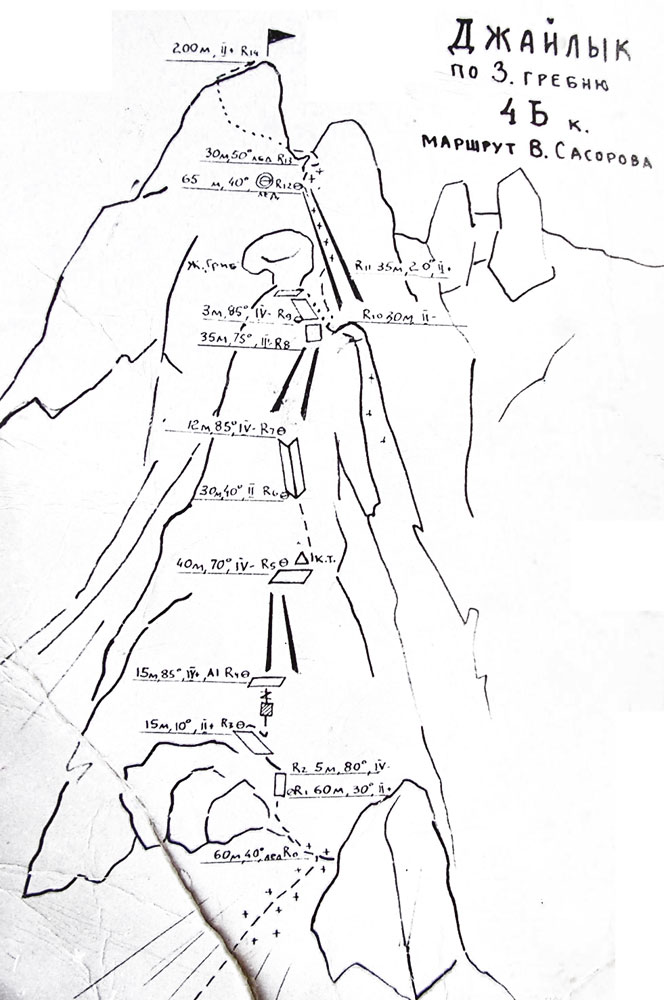 ДЖАЙЛЫК
ПО З. ГРЕБНЮ
4Б К.
МАРШРУТ В. САСОРОВА
200м, II+ R14
30м, 50° лёд R13
65 м, 40° R12
лёд
R11 35м, 20°, II+
Ж. ГРИБ
3м, 85°, IV- R9
R10 30м, II-
35м, 75°, II- R8
12м, 85°, IV- R7
30м, 40°, II R6
I К.Т.
40м, 70°, IV- R5
15м, 85°, IV+, A1 R4
15м, 10°, II+ R3
R2 5м, 80°, IV-
R1 60м, 30°, II+
60м, 40°, лёд R0